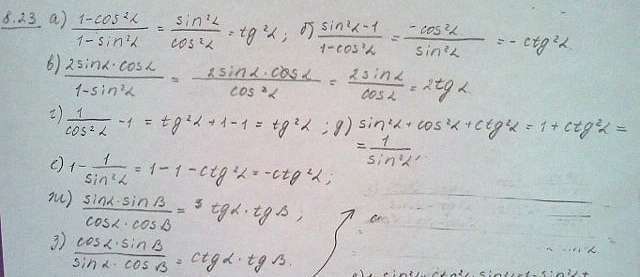 8.23 а) (1-cos²α)/(1-sin²α) = sin²α/cos²α = tg²α; б) (sin²α-1)/(1-cos²α) = -cos²α/sin²α = -ctg²α
в) (2sinα·cosα)/(1-sin²α) = (2sinα·cosα)/cos²α = 2sinα/cosα = 2tgα
г) 1/cos²α -1 = tg²α+1-1 = tg²α; д) sin²α+cos²α+ctg²α = 1+ctg²α =
= 1/sin²α
е) 1- 1/sin²α = 1-1-ctg²α = -ctg²α;
ж) (sinα·sinβ)/(cosα·cosβ) = tgα·tgβ;
з) (cosα·sinβ)/(sinα·cosβ) = ctgα·tgβ.